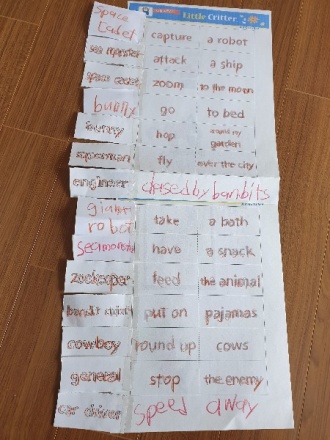 Little Critter
space cadet capture a robot
sea monster attack a ship
space cadet zoom to the moon
bunny go to bed
bunny hop around my garden
superman fly over the city
engineer chased by bandits
giant robot take a bath
seamonster have a snack
zookeeper feed the animal
bandit put on pajamas
cowboy round up cows
general stop the enemy
car driver speed away